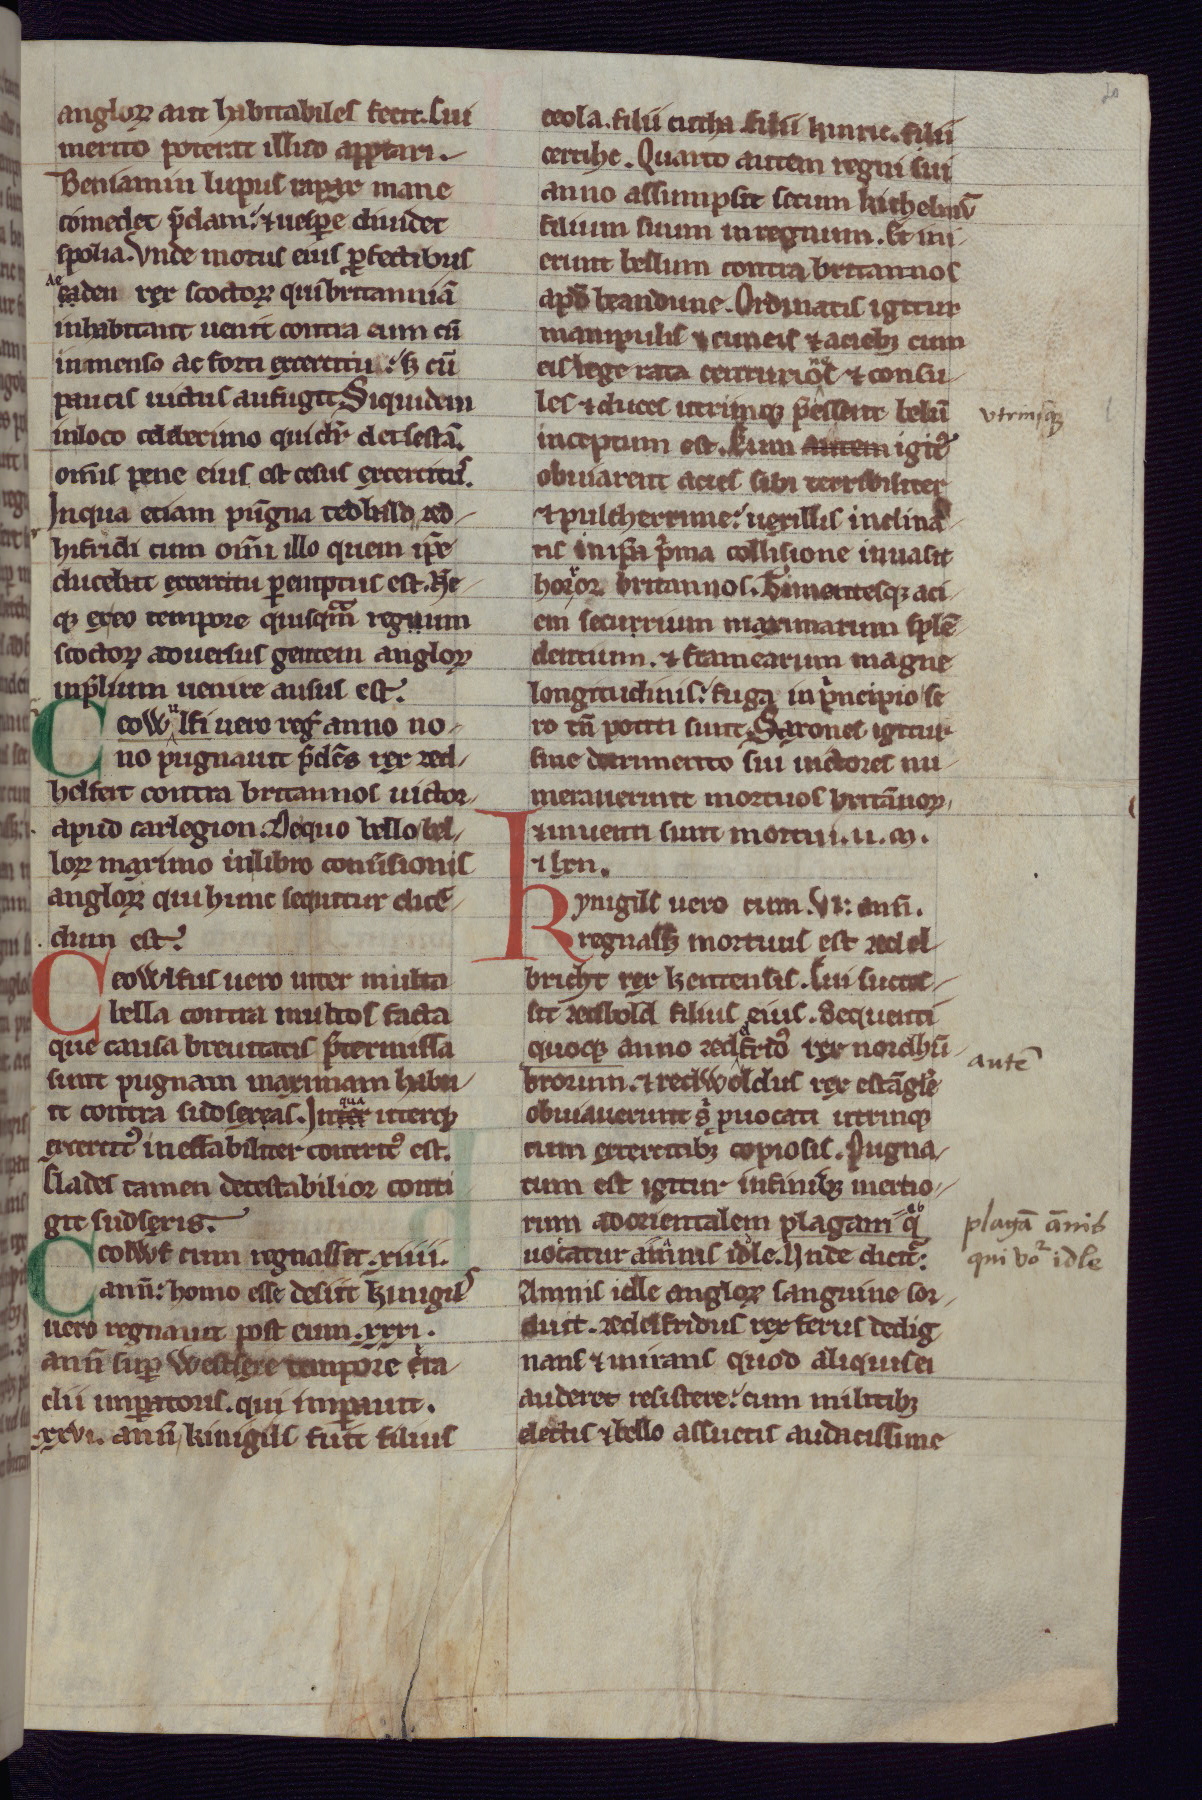 angloꝝ aut habitabiles fecit. Cui
merito poterat illud apptari.
Beniamin lupus rapax mane
cōmedet p̄dam. & uesꝑe diuidet
spolia. Vnde motus eius ꝓfectibus
Aeaden rex scoctoꝝ qui britanniā
inhabitant uenit contra eum cū
inmenso ac forti exercitu. sꝫ cū
paucis uictus aufugit. Siquidem
in loco celeberimo qui dr̄ decsestā.
om̄is pene eius est cesus exercitus.
In qua etiam pūgna tedbald æd-
helfridi cum om̄i illo quem ip̄e
ducebat exercitu ꝑemptus est. Ne-
qꝫ ex eo tempore quisqᵃm regnum
scoctoꝝ aduersus gentem angloꝝ
in p̄lium uenire ausus est.
Ceowulfi uero reḡ anno no-
no pugnauit p̄dc̄s rex æd-
helfert contra britannos uictor
apud carlegion. De quo bello bel-
loꝝ maximo in libro conūsionis
angloꝝ qui hunc sequitur dicē-
dum est.
Ceowlfus uero inter multa
bella contra multos facta
que causa breuitatis p̄termissa
sunt pugnam maximam habu-
it contra sudsexas. In qua uterqꝫ
exercit᷒ ineffabiliter contrit᷒ est.
Clades tamen detestabilior conti
git sudsexis.
Ceolwf cum regnasset .xiiii.
ann̄. homo esse desiit. Kinigils
uero regnauit post eum .xxxi.
ann̄ suꝑ westsexe tempore era-
clii imꝑatoris. qui imꝑauit.
.xxvi. ann̄. kinigils fuit filius
ceola. filii cutha. filii kinric. filii
certihc. Quarto autem regni sui
anno assumpsit secum kichelmū
filium suum in regnum. Et ini-
erunt bellum contra britannos
apd̄ beandune. Ordinatis igitur
manipulis & cuneis & aciebꝫ cum
eis lege rata centuriones & consu-
les & duces utrimqꝫ p̄essent bellū
inceptum est. Cum autem igit᷒
obuiarent acies sibi terribiliter
& pulcherrime. uexillis inclina-
tis in ipsa p̄ma collisione inuasit
horror britannos. Timentesqꝫ aci-
em securrium maximarum splē-
dentium. & framearum magne
longitudinis. fuga in p̄ncipio se-
ro tn̄ potiti sunt. Saxones igitur
sine detrimento sui uictores nu-
merauerunt mortuos britānoꝝ.
& inuenti sunt mortui .ii. m.
& lxii.
Kynigils uero cum .vi. ann̄.
regnassꝫ mortuus est ædel-
bricht rex kentensis. Cui succes-
sit ædbold filius eius. Sequenti
quoqꝫ anno ædelfrid᷒ rex nordhū-
brorum. & redwoldus rex estāgle
obuiauerunt s̄ puocati utrinqꝫ
cum exercitibꝫ copiosis. Pugna-
tum est igitur in finibꝫ mertio-
rum ad orientalem plagam q̄ ab
uocatur amnis idle. Vnde dicit᷒.
Amnis idle angloꝝ sanguine sor-
duit. ædelfridus rex ferus dedig
nans & mirans quod aliquis ei
auderet resistere. cum militibꝫ
electis & bello assuetis audacissime
20
vtrimsqꝫ
autē
plagā āmis
qui voʳ idle